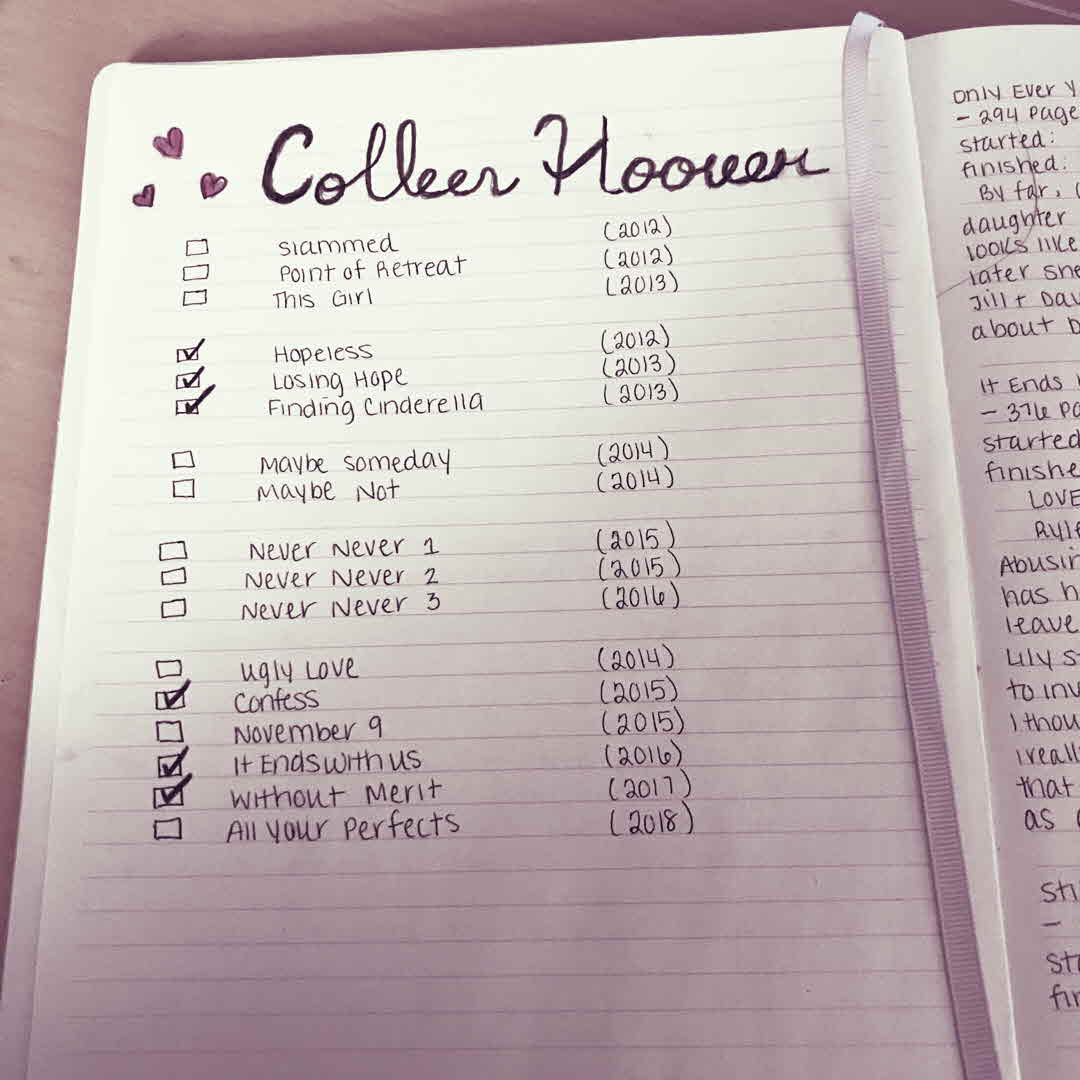 Colleen Hoover
☐ Slammed (2012)
☐ Point of Retreat (2012)
☐ This Girl (2013)
☑ Hopeless (2012)
☑ Losing Hope (2013)
☑ Finding Cinderella (2013)
☐ Maybe Someday (2014)
☐ Maybe Not (2014)
☐ Never Never 1 (2015)
☐ Never Never 2 (2015)
☐ Never Never 3 (2016)
☐ Ugly Love (2014)
☑ Confess (2015)
☐ November 9 (2015)
☑ It Ends With Us (2016)
☑ Without Merit (2017)
☐ All Your Perfects (2018)
Only Ever
- 294 page
started:
finished:
By far,
daughter
looks like
later she
Jill +
about
It Ends
- 376
started
LOVE
has
leave
Lily
to
I
that
as